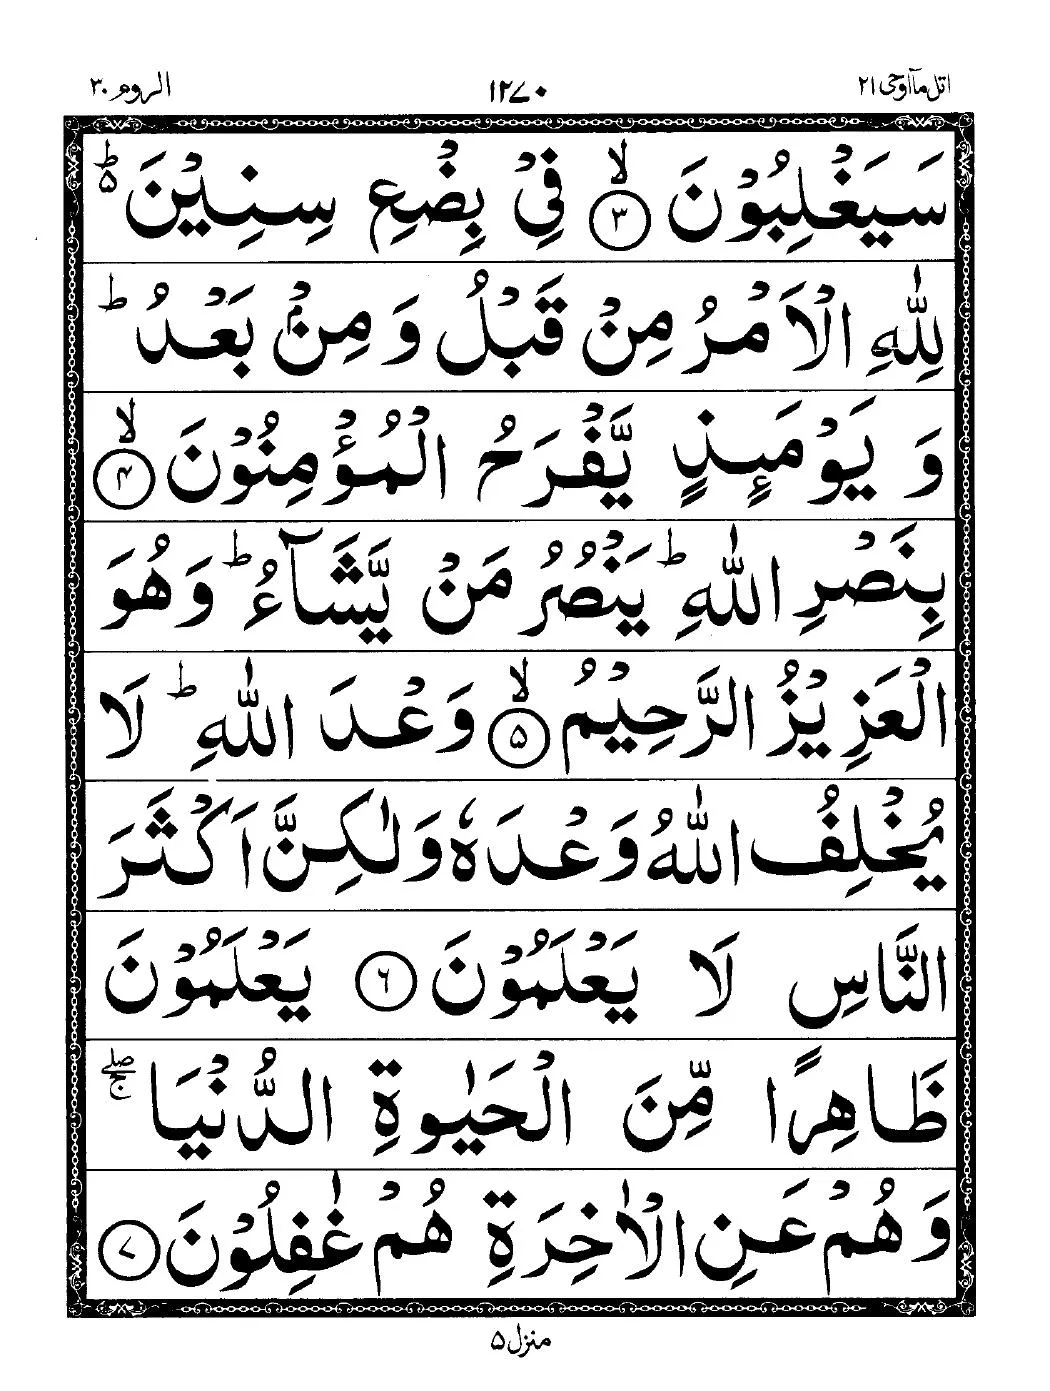 اتل مآاوحی ۲۱ ۱۲۷۰ الروم ۳۰
سَيَغْلِبُوْنَ ۙ﴿۳﴾ فِیْ بِضْعِ سِنِيْنَ ؕ۵
لِلّٰهِ الْاَمْرُ مِنْ قَبْلُ وَ مِنْۢ بَعْدُ ؕ
وَ يَوْمَئِذٍ يَّفْرَحُ الْمُؤْمِنُوْنَ ۙ﴿۴﴾
بِنَصْرِ اللّٰهِ ؕ يَنْصُرُ مَنْ يَّشَآءُ ؕ وَهُوَ
الْعَزِيْزُ الرَّحِيْمُ ۙ﴿۵﴾ وَعْدَ اللّٰهِ ؕ لَا
يُخْلِفُ اللّٰهُ وَعْدَهٗ وَلٰكِنَّ اَكْثَرَ
النَّاسِ لَا يَعْلَمُوْنَ ﴿۶﴾ يَعْلَمُوْنَ
ظَاهِرًا مِّنَ الْحَيٰوةِ الدُّنْيَا ۖۚ
وَهُمْ عَنِ الْاٰخِرَةِ هُمْ غٰفِلُوْنَ ﴿۷﴾
منزل ۵